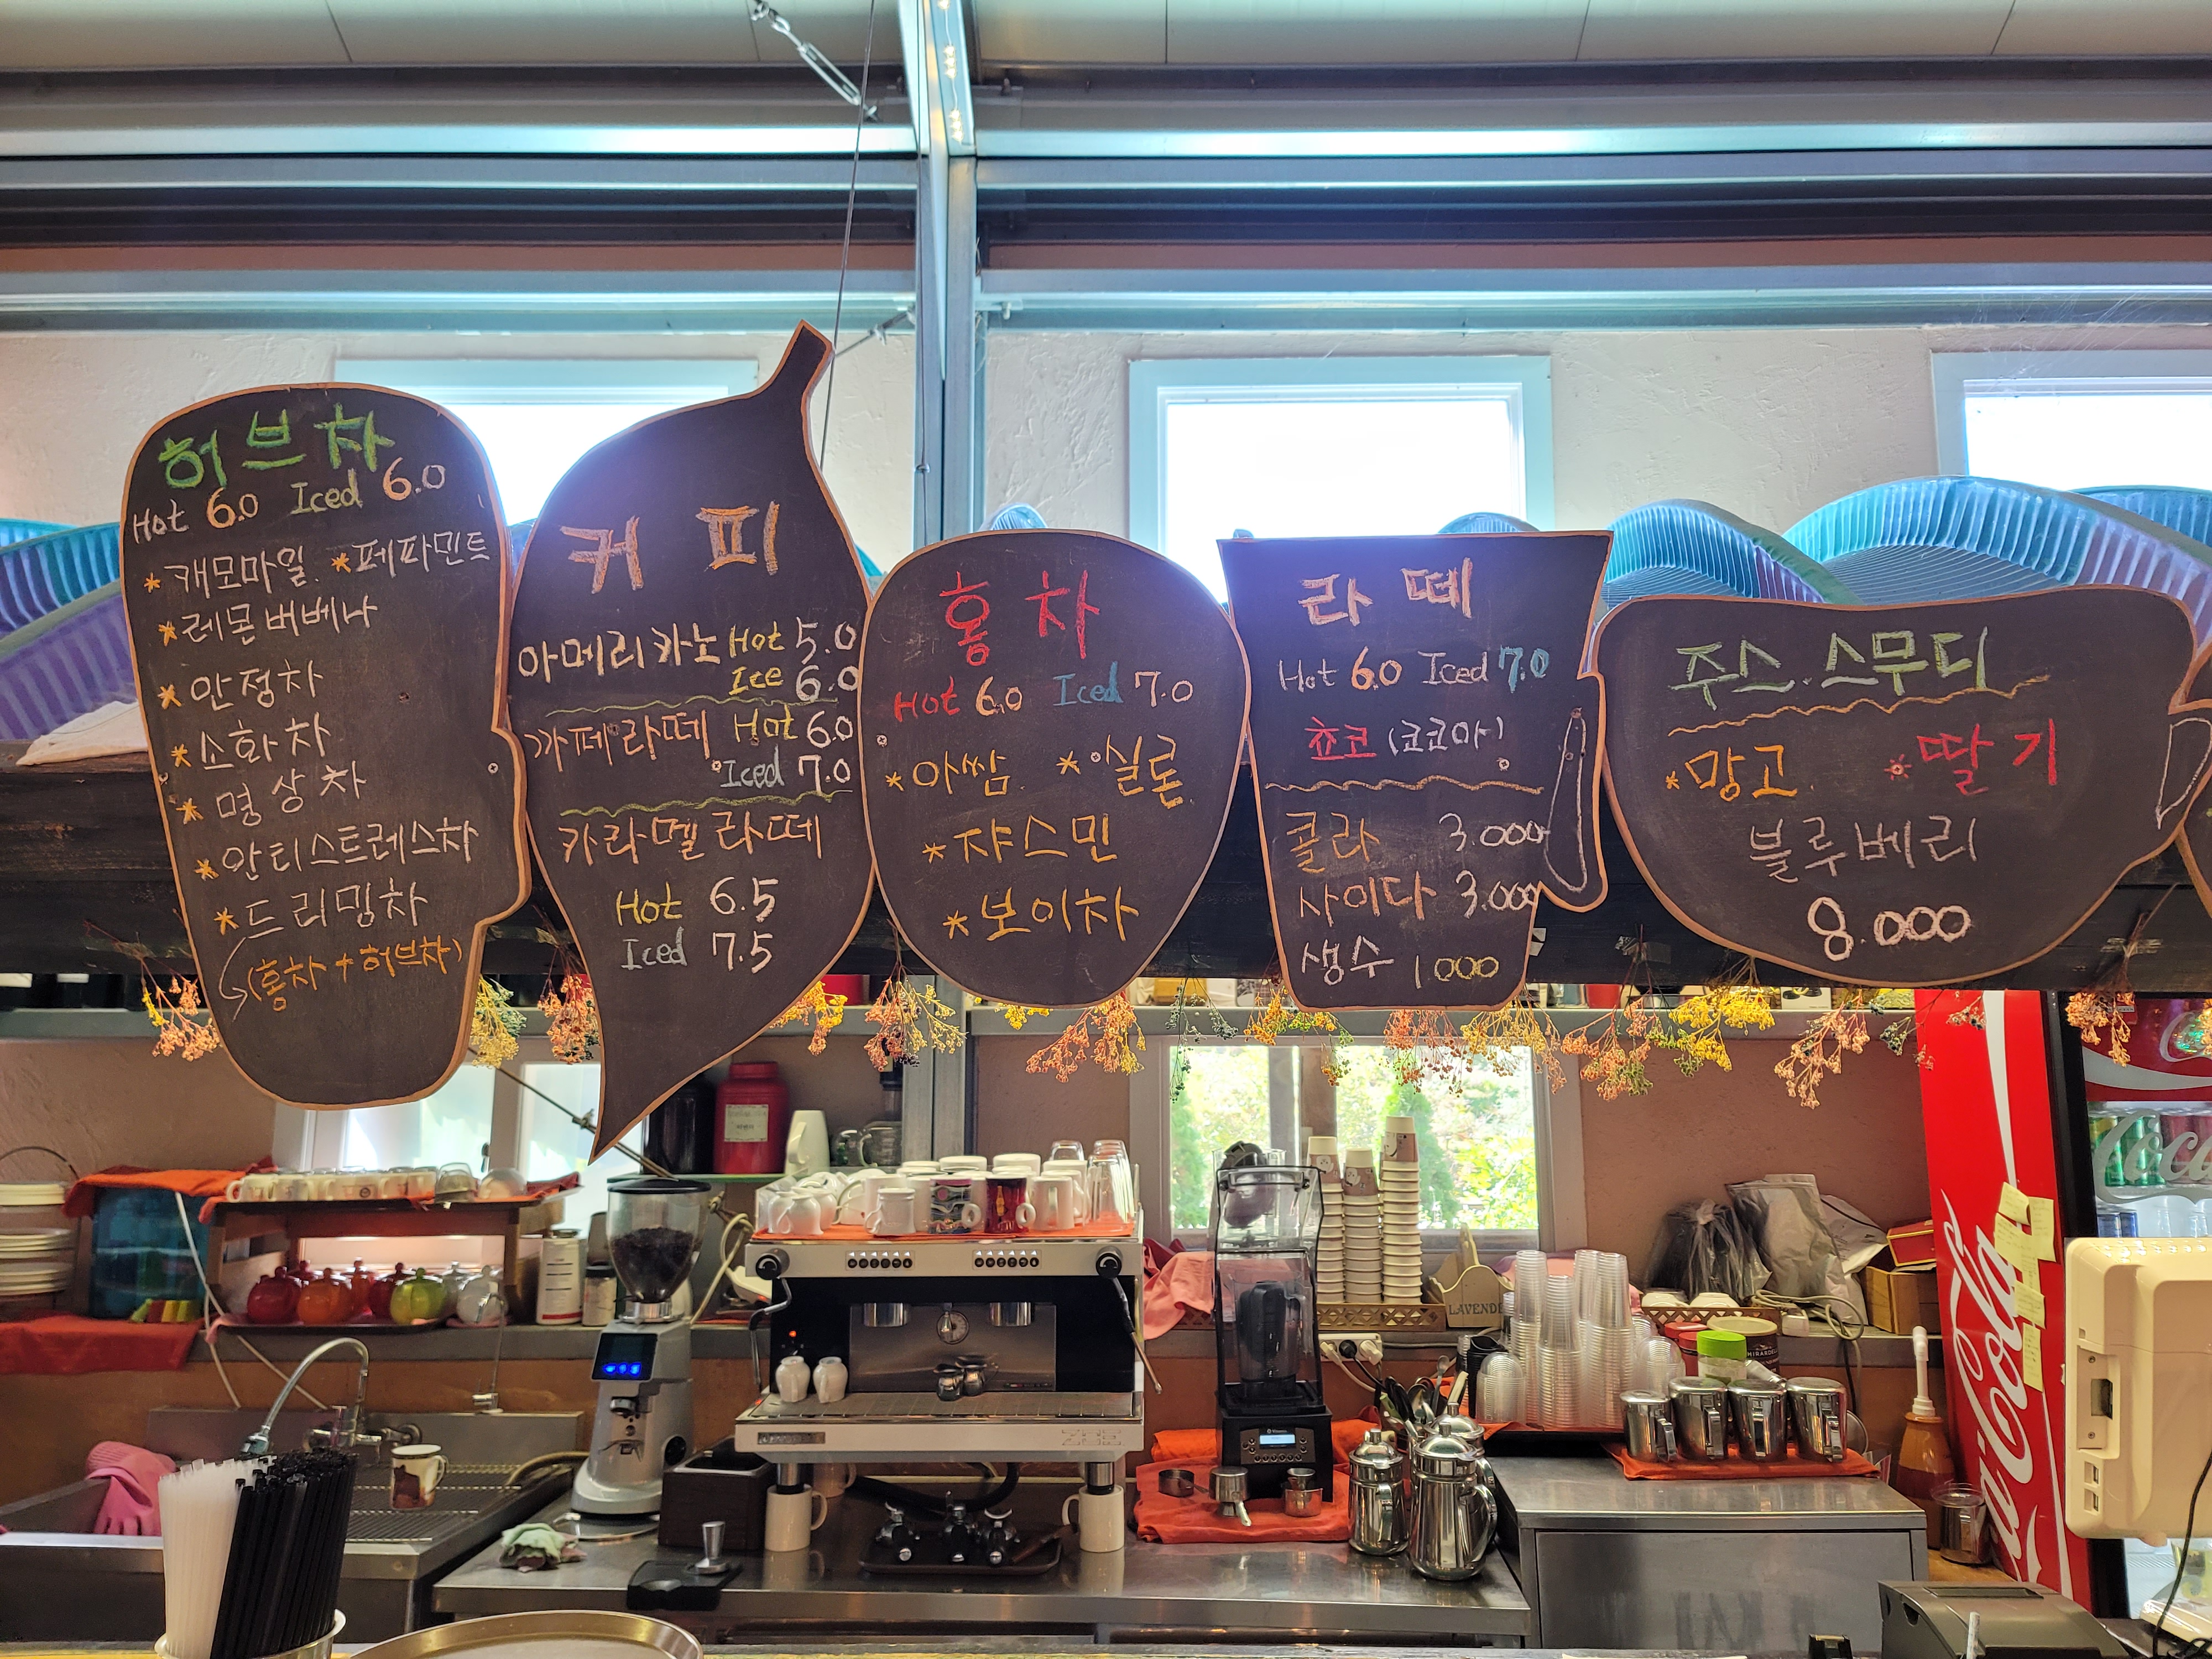 허브차
Hot 6.0 Iced 6.0
*캐모마일. *페파민트
*레몬버베나
*안정차
*소화차
*명상차
*안티스트레스차
*드리밍차
(홍차+허브차)
커피
아메리카노 Hot 5.0
Ice 6.0
까페라떼 Hot 6.0
Iced 7.0
카라멜라떼
Hot 6.5
Iced 7.5
홍차
Hot 6.0 Iced 7.0
*아쌈 *실론
*쟈스민
*보이차
라떼
Hot 6.0 Iced 7.0
쵸코 (코코아)
콜라 3.000
사이다 3.000
생수 1000
주스.스무디
*망고 *딸기
블루베리
8.000
LAVENDE
Coca-Cola